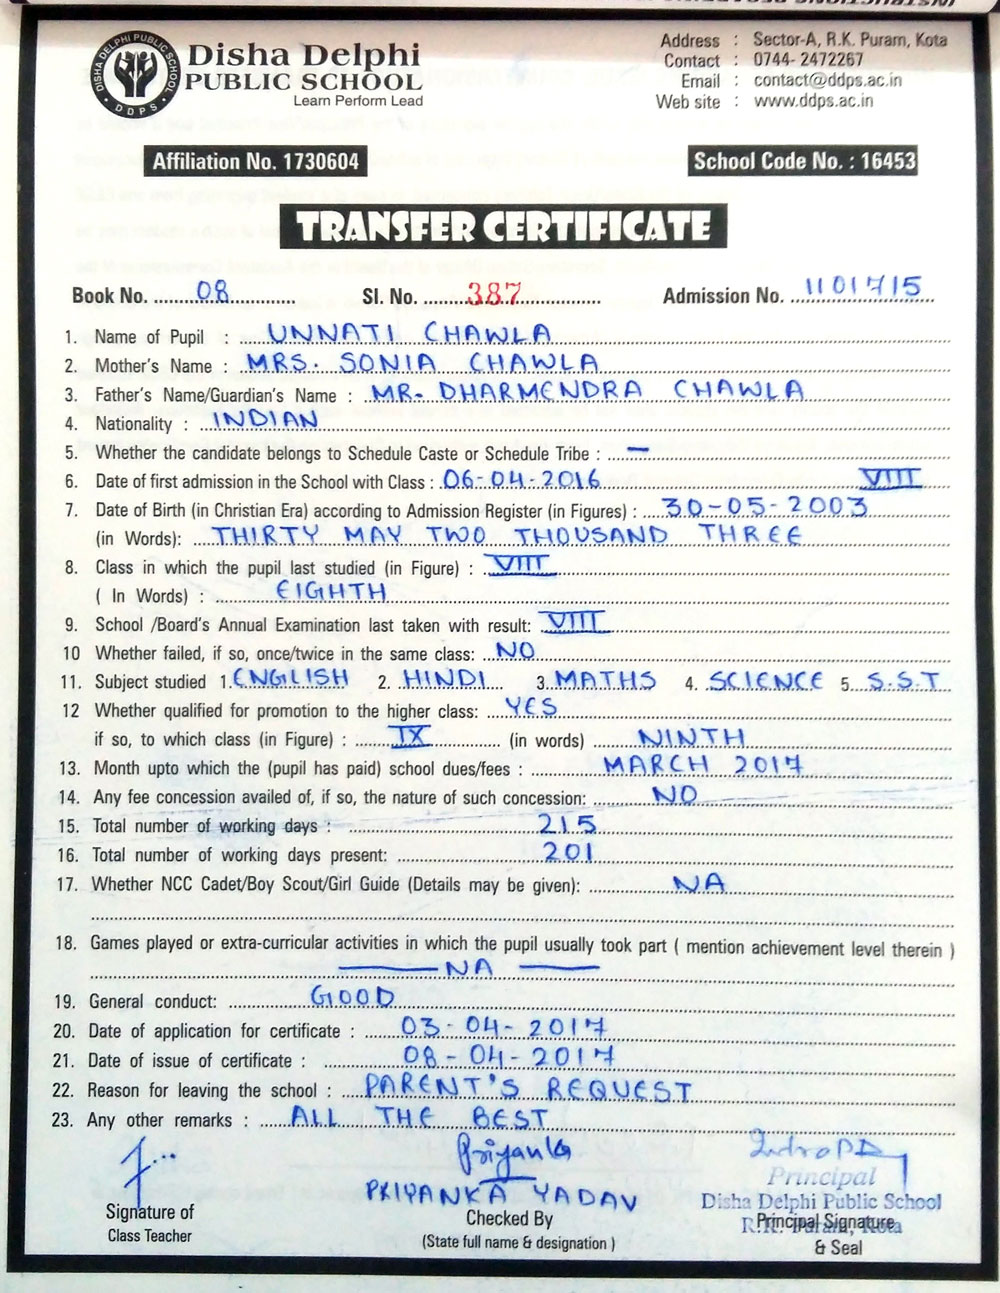 Disha Delphi
PUBLIC SCHOOL
Learn Perform Lead
DISHA DELPHI PUBLIC SCHOOL
DDPS
Address : Sector-A, R.K. Puram, Kota
Contact : 0744- 2472267
Email : contact@ddps.ac.in
Web site : www.ddps.ac.in
Affiliation No. 1730604
School Code No. : 16453
TRANSFER CERTIFICATE
Book No. 08 Sl. No. 387 Admission No. 1101715
1. Name of Pupil : UNNATI CHAWLA
2. Mother's Name : MRS. SONIA CHAWLA
3. Father's Name/Guardian's Name : MR. DHARMENDRA CHAWLA
4. Nationality : INDIAN
5. Whether the candidate belongs to Schedule Caste or Schedule Tribe : —
6. Date of first admission in the School with Class : 06-04-2016 VIII
7. Date of Birth (in Christian Era) according to Admission Register (in Figures) : 30-05-2003
(in Words): THIRTY MAY TWO THOUSAND THREE
8. Class in which the pupil last studied (in Figure) : VIII
( In Words) : EIGHTH
9. School /Board's Annual Examination last taken with result: VIII
10 Whether failed, if so, once/twice in the same class: NO
11. Subject studied 1. ENGLISH 2. HINDI 3. MATHS 4. SCIENCE 5. S.S.T
12 Whether qualified for promotion to the higher class: YES
if so, to which class (in Figure) : IX (in words) NINTH
13. Month upto which the (pupil has paid) school dues/fees : MARCH 2017
14. Any fee concession availed of, if so, the nature of such concession: NO
15. Total number of working days : 215
16. Total number of working days present: 201
17. Whether NCC Cadet/Boy Scout/Girl Guide (Details may be given): NA
18. Games played or extra-curricular activities in which the pupil usually took part ( mention achievement level therein )
— NA —
19. General conduct: GOOD
20. Date of application for certificate : 03-04-2017
21. Date of issue of certificate : 08-04-2017
22. Reason for leaving the school : PARENT'S REQUEST
23. Any other remarks : ALL THE BEST
Priyanka
PRIYANKA YADAV
Principal
Disha Delphi Public School
R.K. Puram, Kota
Signature of
Class Teacher
Checked By
(State full name & designation )
Principal Signature
& Seal